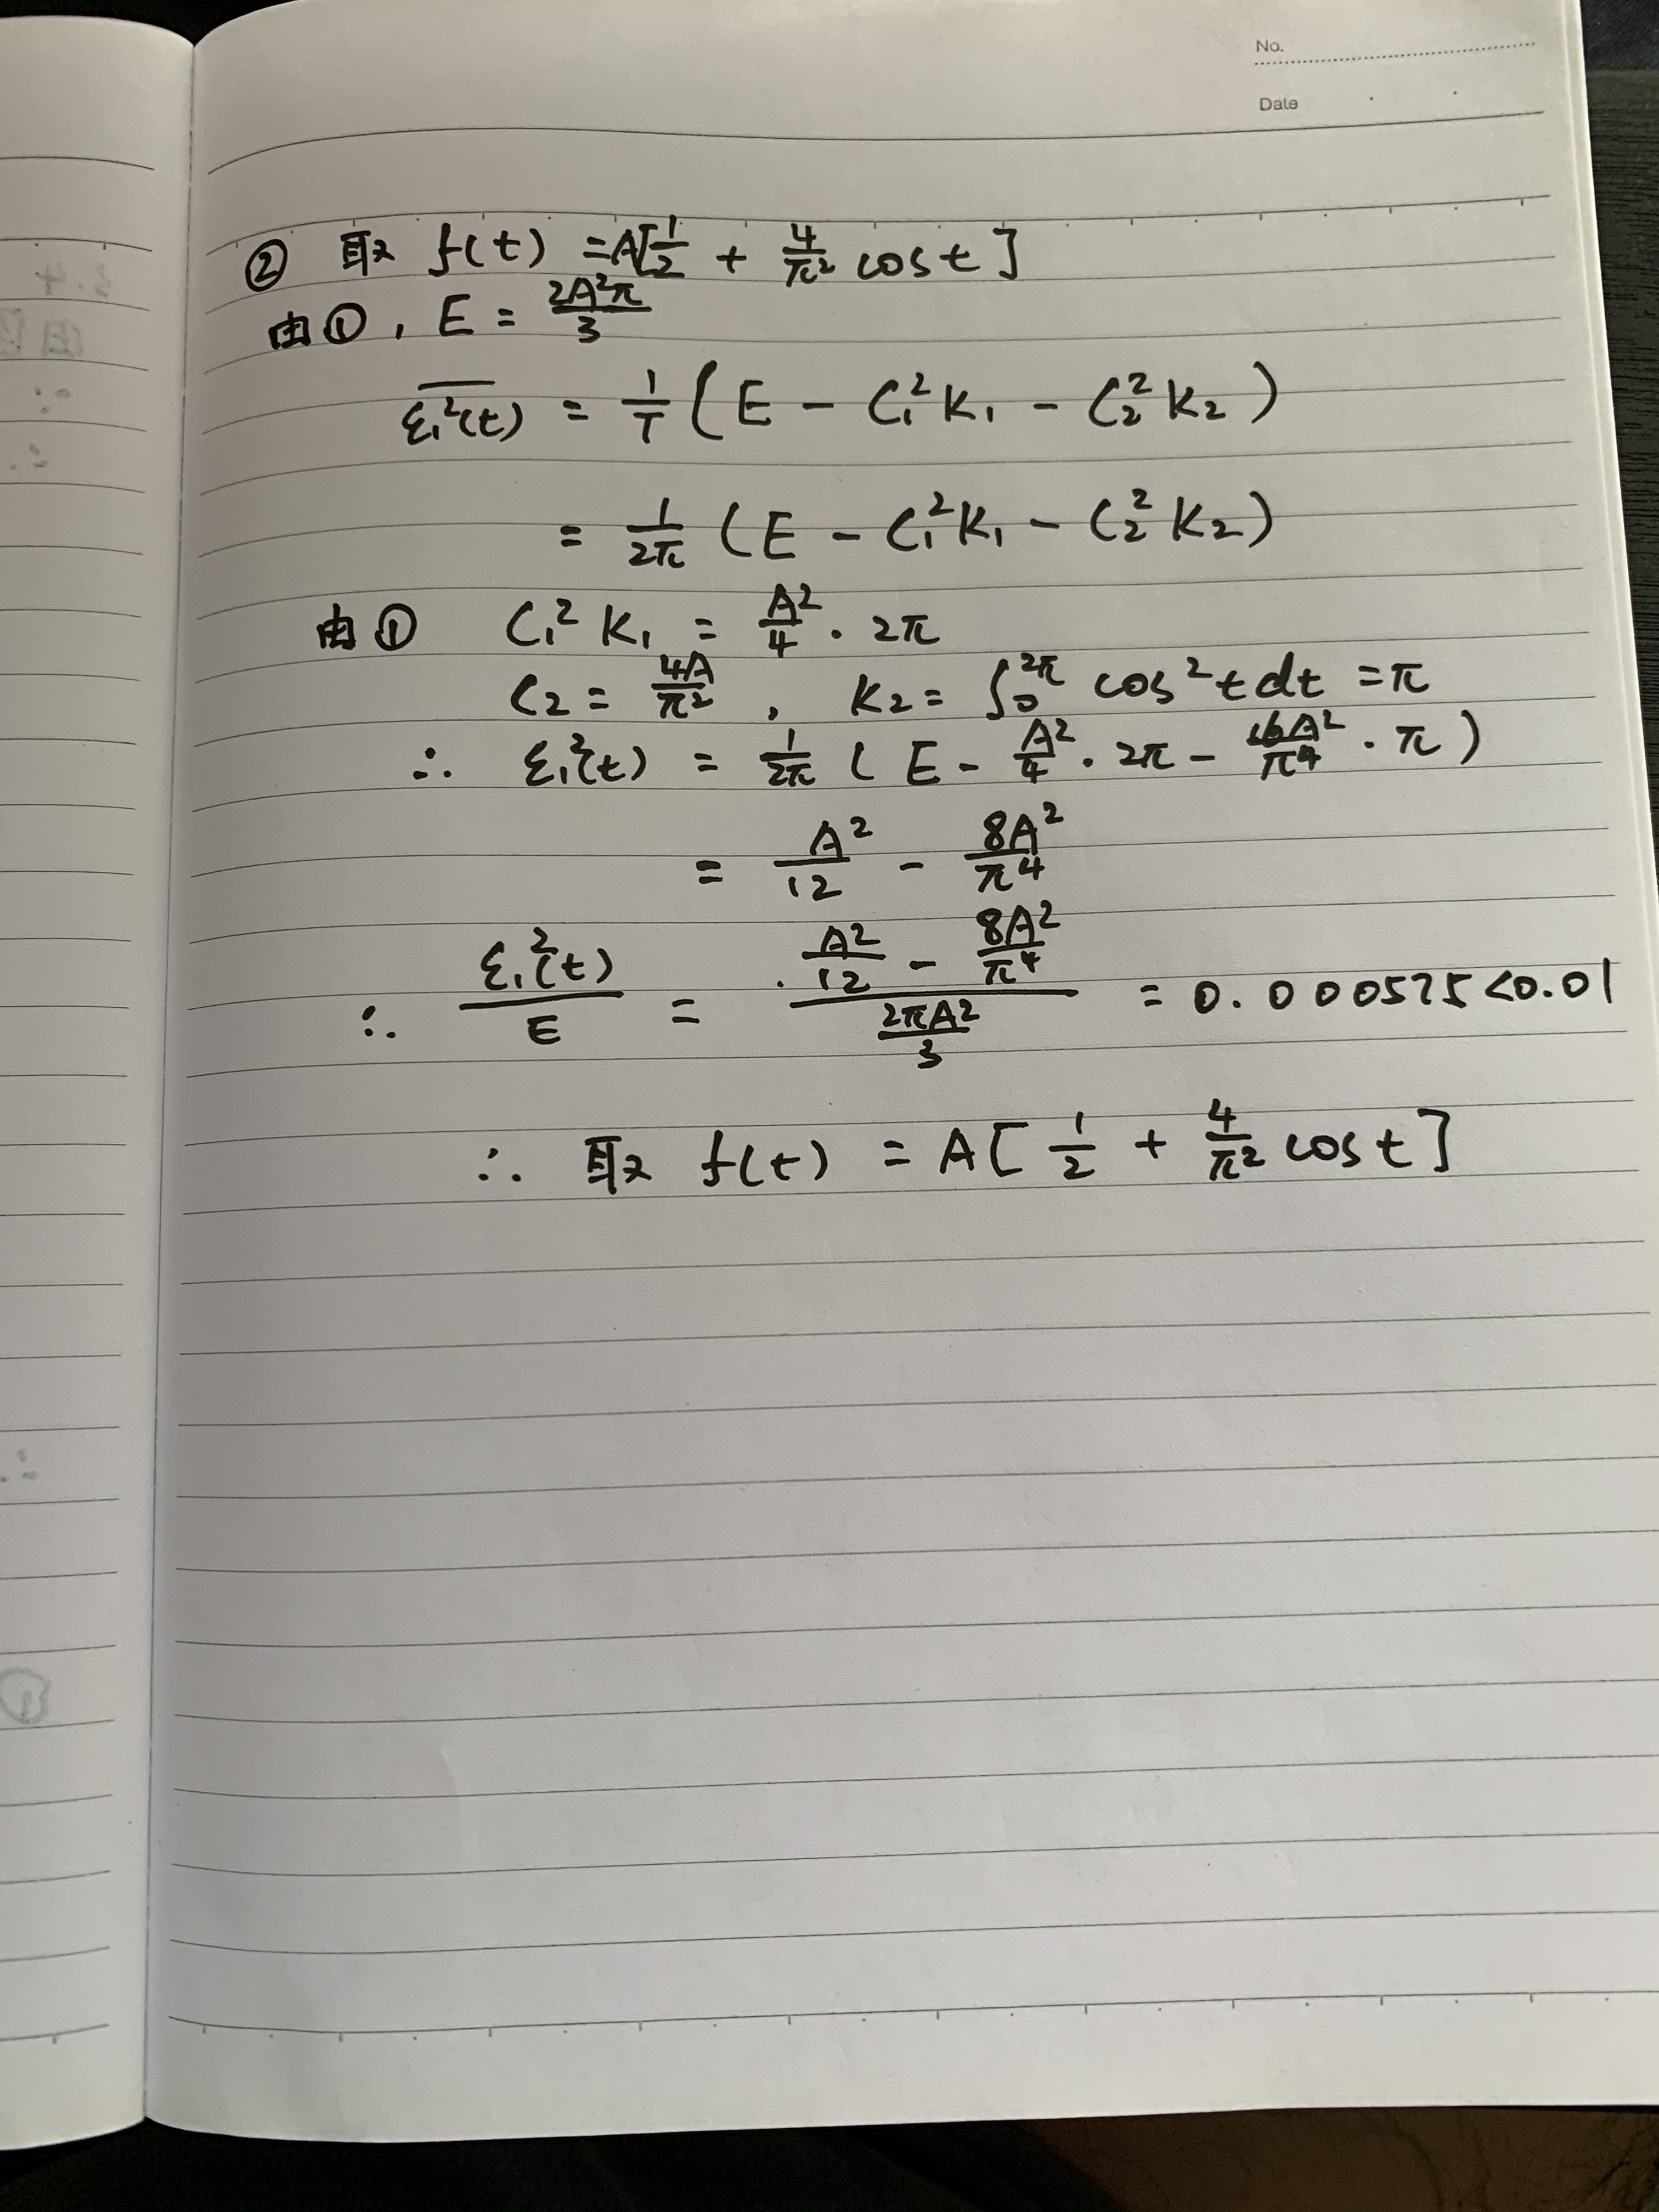 No.
Date
② 取 f(t) = A[1/2 + 4/π² cos t]
由①, E = 2A²π/3
ε₁²(t) = 1/T (E - C₁²K₁ - C₂²K₂)
= 1/2π (E - C₁²K₁ - C₂²K₂)
由① C₁²K₁ = A²/4 · 2π
C₂ = 4A/π², K₂ = ∫₀^2π cos²t dt = π
∴ ε₁²(t) = 1/2π (E - A²/4 · 2π - 16A²/π⁴ · π)
= A²/12 - 8A²/π⁴
∴ ε₁²(t)/E = (A²/12 - 8A²/π⁴)/(2πA²/3) = 0.000575 < 0.01
∴ 取 f(t) = A[1/2 + 4/π² cos t]